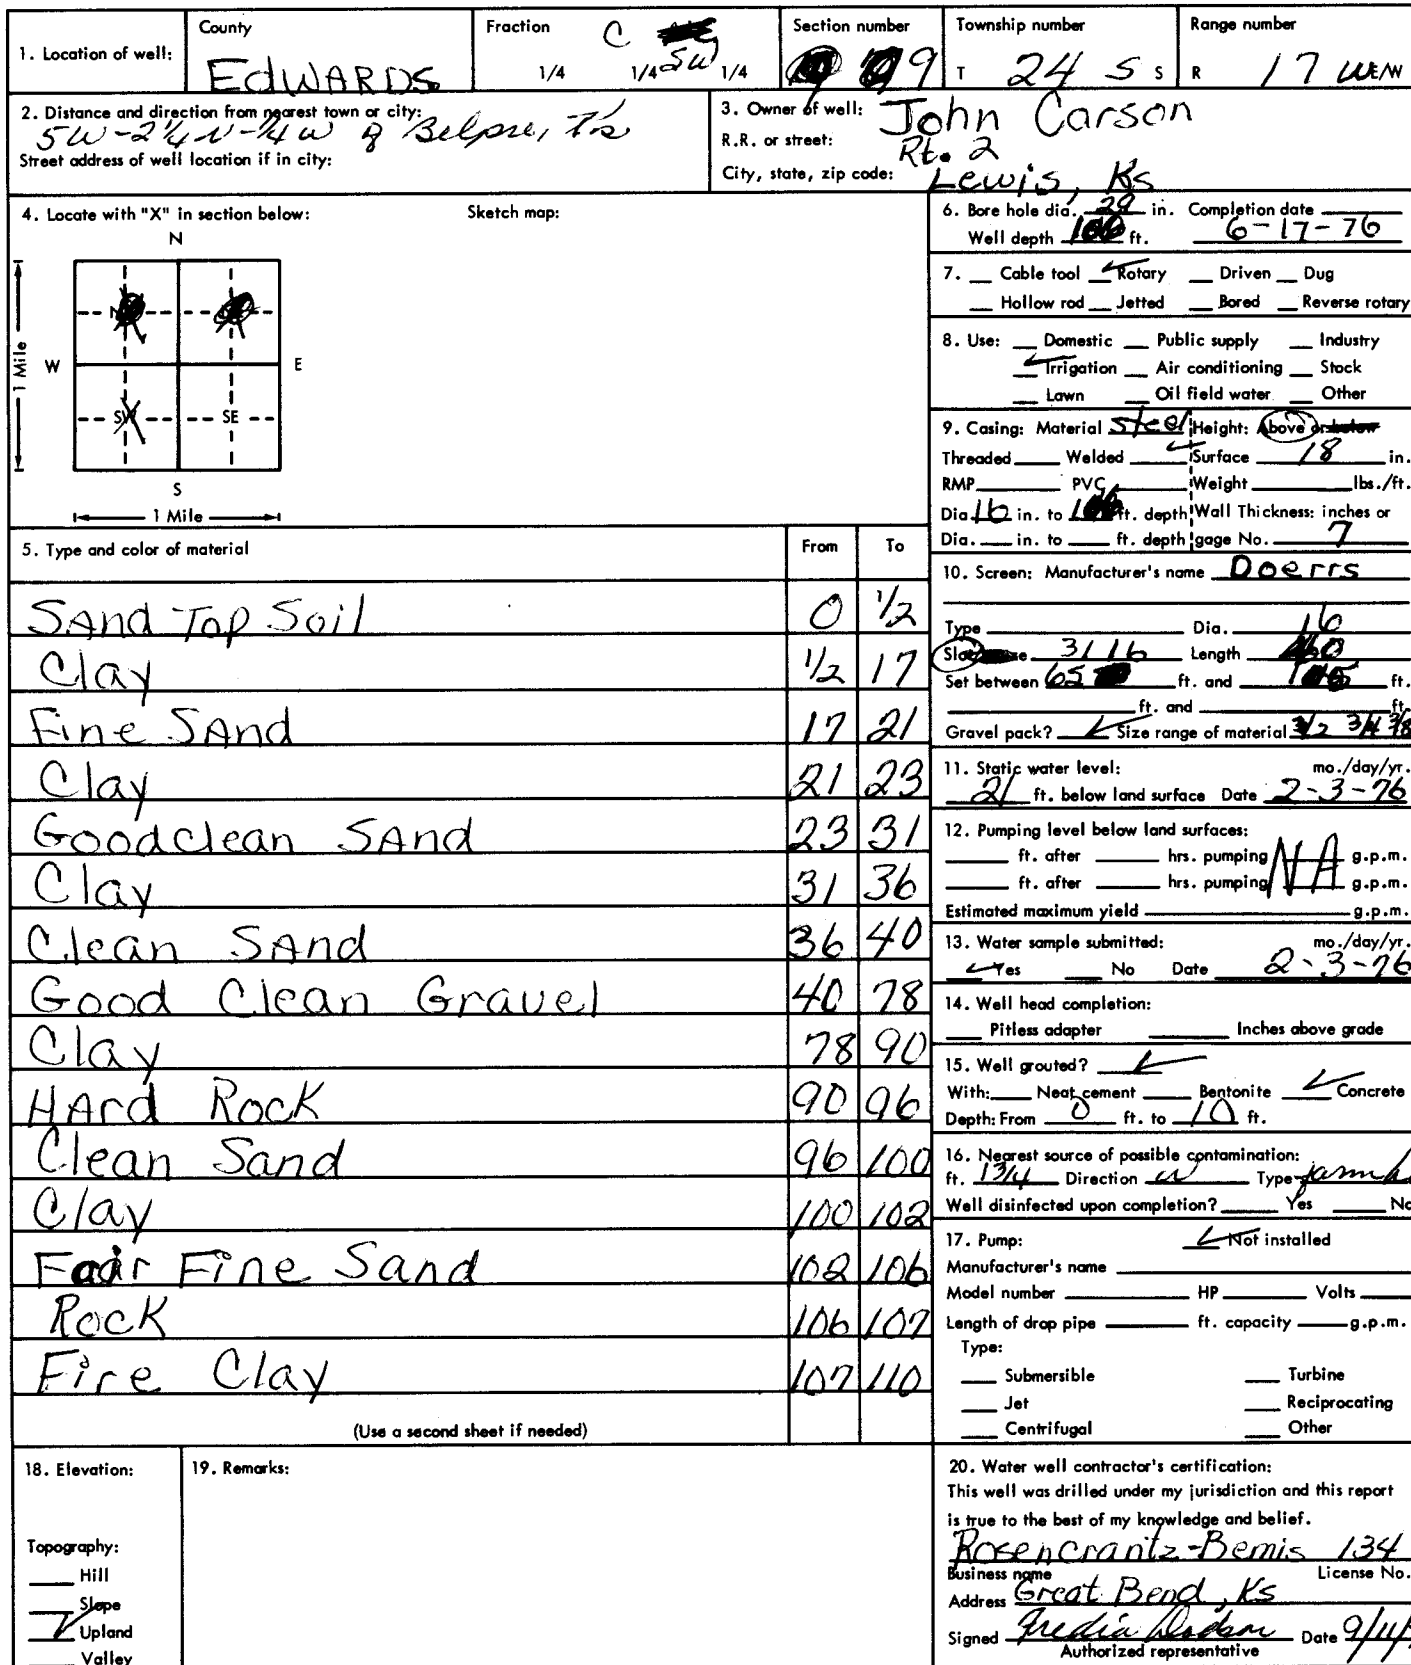 1. Location of well:
County
EdWARDS
Fraction C
1/4 1/4 SW 1/4
Section number
9
Township number
T 24 S S
Range number
R 17 W E/W
2. Distance and direction from nearest town or city:
5W-2¼N-¼W of Belpre, Ks
Street address of well location if in city:
3. Owner of well: John Carson
R.R. or street: Rt. 2
City, state, zip code: Lewis, Ks
4. Locate with "X" in section below: Sketch map:
N
W E
SW SE
S
1 Mile
1 Mile
5. Type and color of material From To
SAnd Top Soil 0 1/2
Clay 1/2 17
Fine SAnd 17 21
Clay 21 23
Good clean SAnd 23 31
Clay 31 36
Clean SAnd 36 40
Good Clean Gravel 40 78
Clay 78 90
HArd Rock 90 96
Clean Sand 96 100
Clay 100 102
Fair Fine Sand 102 106
Rock 106 107
Fire Clay 107 110
(Use a second sheet if needed)
6. Bore hole dia. 29 in. Completion date
Well depth ft. 6-17-76
7. Cable tool ✓ Rotary Driven Dug
Hollow rod Jetted Bored Reverse rotary
8. Use: Domestic Public supply Industry
✓ Irrigation Air conditioning Stock
Lawn Oil field water Other
9. Casing: Material Steel Height: Above or below
Threaded Welded ✓ Surface 18 in.
RMP PVC Weight lbs./ft.
Dia 16 in. to ft. depth Wall Thickness: inches or
Dia. in. to ft. depth gage No. 7
10. Screen: Manufacturer's name Doerrs
Type Dia. 16
Slot 3/16 Length
Set between 65 ft. and ft.
ft. and ft.
Gravel pack? ✓ Size range of material
11. Static water level: mo./day/yr.
21 ft. below land surface Date 2-3-76
12. Pumping level below land surfaces:
ft. after hrs. pumping NA g.p.m.
ft. after hrs. pumping g.p.m.
Estimated maximum yield g.p.m.
13. Water sample submitted: mo./day/yr.
✓ Yes No Date 2-3-76
14. Well head completion:
Pitless adapter Inches above grade
15. Well grouted? ✓
With: Neat cement Bentonite ✓ Concrete
Depth: From 0 ft. to 10 ft.
16. Nearest source of possible contamination:
ft. 1 3/4 Direction W Type
Well disinfected upon completion? Yes No
17. Pump: ✓ Not installed
Manufacturer's name
Model number HP Volts
Length of drop pipe ft. capacity g.p.m.
Type:
Submersible Turbine
Jet Reciprocating
Centrifugal Other
18. Elevation:
Topography:
Hill
Slope
✓ Upland
Valley
19. Remarks:
20. Water well contractor's certification:
This well was drilled under my jurisdiction and this report
is true to the best of my knowledge and belief.
Rosencrantz-Bemis 134
Business name License No.
Address Great Bend, Ks
Signed Fredia Dodson Date 9/11/
Authorized representative